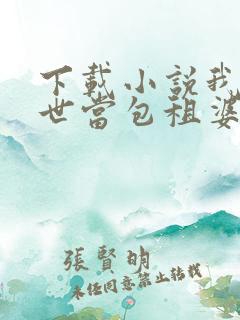 下載小說我
世當包租婆
張賢明
未經同意禁止轉載